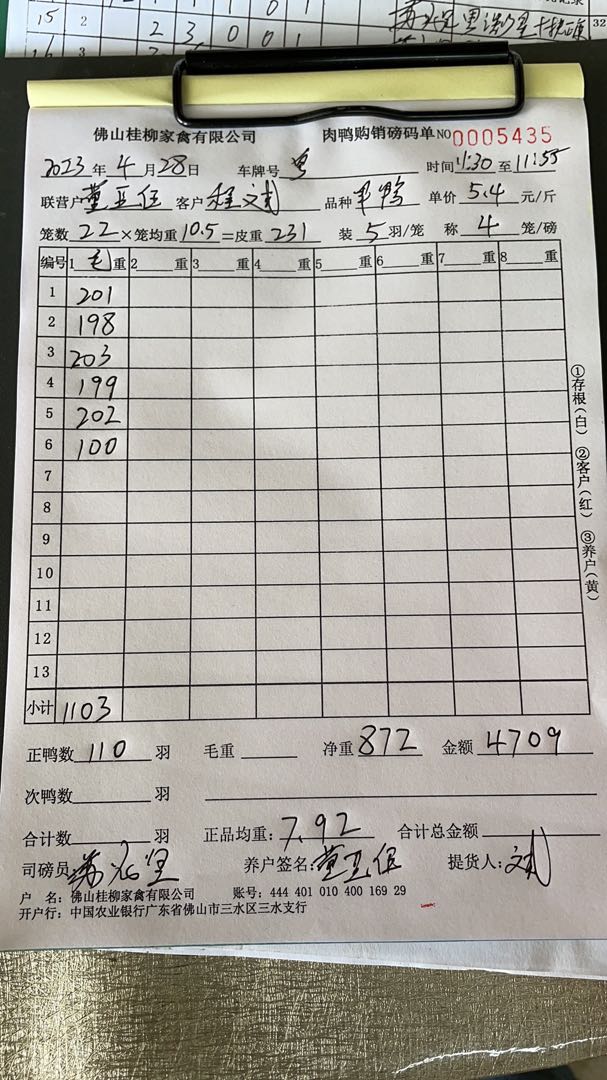 15 2 2 3 0 0 1
佛山桂柳家禽有限公司 肉鸭购销磅码单NO 0005435
2023年4月28日 车牌号 粤 时间11:30至11:55
联营户 董亚伍 客户 程文彬 品种 半鸭 单价 5.4 元/斤
笼数 22 ×笼均重 10.5 =皮重 231 装 5 羽/笼 称 4 笼/磅
编号 1 毛 重 2 重 3 重 4 重 5 重 6 重 7 重 8 重
1 201
2 198
3 203
4 199
5 202
6 100
7
8
9
10
11
12
13
小计 1103
①存根(白) ②客户(红) ③养户(黄)
正鸭数 110 羽 毛重 净重 872 金额 4709
次鸭数 羽
合计数 羽 正品均重: 7.92 合计总金额
司磅员 养户签名: 董亚伍 提货人: 文彬
户 名: 佛山桂柳家禽有限公司 账号: 444 401 010 400 169 29
开户行: 中国农业银行广东省佛山市三水区三水支行